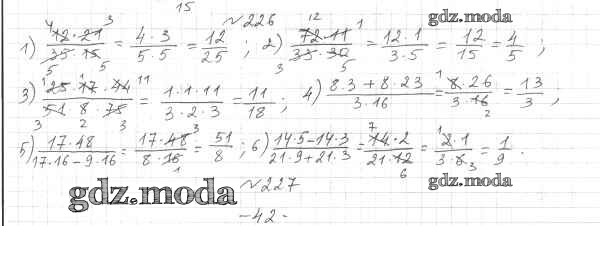 15
№226
gdz.moda
1) 12·21 / 35·15 = 4·3 / 5·5 = 12/25 ; 2) 72·11 / 33·30 = 12·1 / 3·5 = 12/15 = 4/5 ;
3) 25·17·44 / 51·8·75 = 1·1·11 / 3·2·3 = 11/18 ; 4) 8·3+8·23 / 3·16 = 8·26 / 3·16 = 13/3 ;
5) 17·48 / 17·16-9·16 = 17·48 / 8·16 = 51/8 ; 6) 14·5-14·3 / 21·9+21·3 = 14·2 / 21·12 = 2·1 / 3·6 = 1/9 .
gdz.moda
№227
gdz.moda
-42-